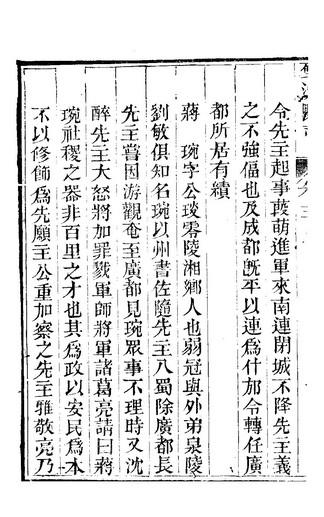 令先主起事葭萌進軍來南連閉城不降先主義
之不強偪也及成都旣平以連爲什邡令轉任廣
都所居有績
蔣　琬字公琰零陵湘鄉人也弱冠與外弟泉陵
劉敏俱知名琬以州書佐隨先主入蜀除廣都長
先主嘗因游觀奄至廣都見琬眾事不理時又沈
醉先主大怒將加罪戮軍師將軍諸葛亮請曰蔣
琬社稷之器非百里之才也其爲政以安民爲本
不以修飾爲先願主公重加察之先主雅敬亮乃